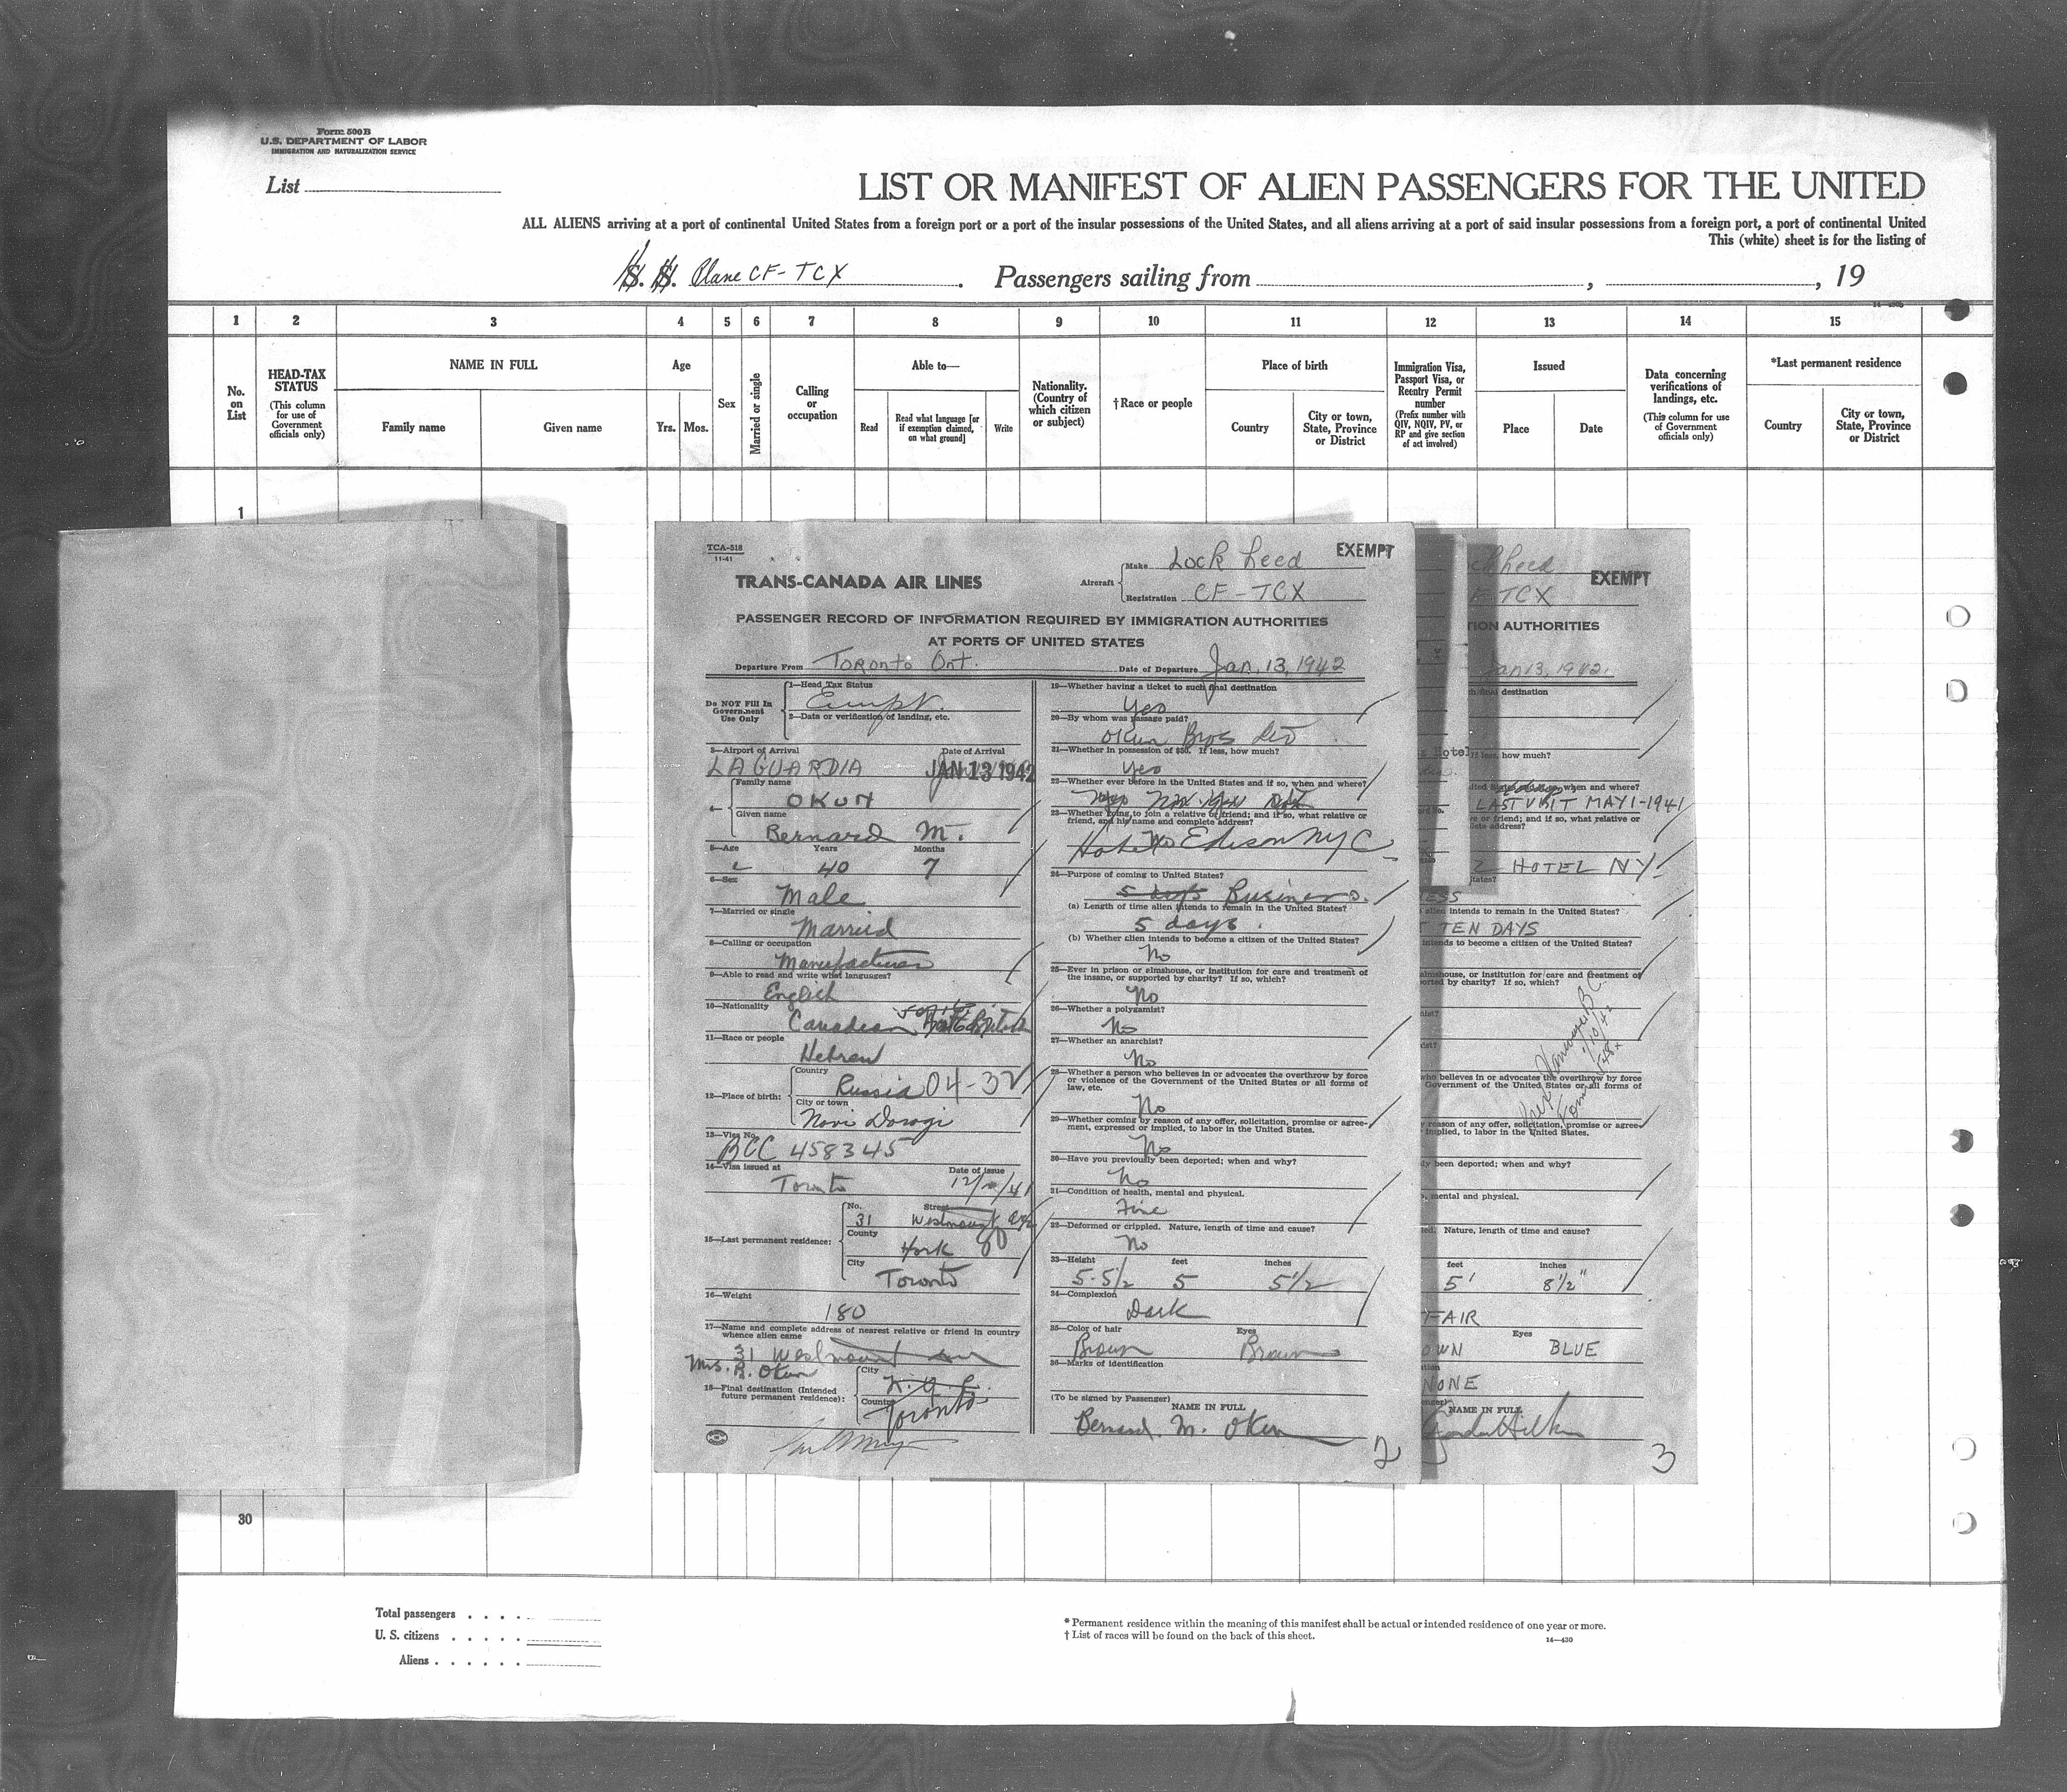 Form 500B
U.S. DEPARTMENT OF LABOR
IMMIGRATION AND NATURALIZATION SERVICE
List
LIST OR MANIFEST OF ALIEN PASSENGERS FOR THE UNITED
ALL ALIENS arriving at a port of continental United States from a foreign port or a port of the insular possessions of the United States, and all aliens arriving at a port of said insular possessions from a foreign port, a port of continental United
This (white) sheet is for the listing of
S. S. Plane CF-TCX. Passengers sailing from , , 19
14-430b
1 2 3 4 5 6 7 8 9 10 11 12 13 14 15
No. on List
HEAD-TAX STATUS
(This column for use of Government officials only)
NAME IN FULL
Family name
Given name
Age
Yrs. Mos.
Sex
Married or single
Calling or occupation
Able to—
Read
Read what language [or if exemption claimed, on what ground]
Write
Nationality. (Country of which citizen or subject)
†Race or people
Place of birth
Country
City or town, State, Province or District
Immigration Visa, Passport Visa, or Reentry Permit number
(Prefix number with QIV, NQIV, PV, or RP and give section of act involved)
Issued
Place
Date
Data concerning verifications of landings, etc.
(This column for use of Government officials only)
*Last permanent residence
Country
City or town, State, Province or District
1
TCA-518
11-41
TRANS-CANADA AIR LINES
EXEMPT
Aircraft
Make Lockheed
Registration CF-TCX
PASSENGER RECORD OF INFORMATION REQUIRED BY IMMIGRATION AUTHORITIES
AT PORTS OF UNITED STATES
Departure From Toronto Ont.
Date of Departure Jan. 13, 1942
Do NOT Fill In Government Use Only
1—Head Tax Status
Exempt.
2—Data or verification of landing, etc.
3—Airport of Arrival
Date of Arrival
LAGUARDIA JAN 13 1942
4—
Family name
OKUN
Given name
Bernard M.
5—Age Years Months
40 7
6—Sex
Male
7—Married or single
Married
8—Calling or occupation
Manufacturer
9—Able to read and write what languages?
English
10—Nationality
Canadian
11—Race or people
Hebrew
12—Place of birth:
Country
Russia 04-32
City or town
Novi Dorogi
13—Visa No.
BCC 458345
14—Visa issued at
Date of issue
Toronto 12/ /41
15—Last permanent residence:
No. Street
31 Westmount Ave
County
York 80
City
Toronto
16—Weight
180
17—Name and complete address of nearest relative or friend in country whence alien came
31 Westmount Ave
Mrs. R. Okun
18—Final destination (Intended future permanent residence):
City
N.Y.C.
Country
Toronto
19—Whether having a ticket to such final destination
Yes
20—By whom was passage paid?
Okun Bros Ltd
21—Whether in possession of $50. If less, how much?
Yes
22—Whether ever before in the United States and if so, when and where?
23—Whether going to join a relative or friend; and if so, what relative or friend, and his name and complete address?
Hotel Edison NYC
24—Purpose of coming to United States?
5 days Business.
(a) Length of time alien intends to remain in the United States?
5 days.
(b) Whether alien intends to become a citizen of the United States?
No
25—Ever in prison or almshouse, or institution for care and treatment of the insane, or supported by charity? If so, which?
No
26—Whether a polygamist?
No
27—Whether an anarchist?
No
28—Whether a person who believes in or advocates the overthrow by force or violence of the Government of the United States or all forms of law, etc.
No
29—Whether coming by reason of any offer, solicitation, promise or agreement, expressed or implied, to labor in the United States.
No
30—Have you previously been deported; when and why?
No
31—Condition of health, mental and physical.
Fine
32—Deformed or crippled. Nature, length of time and cause?
No
33—Height feet inches
5-5 1/2 5 5 1/2
34—Complexion
Dark
35—Color of hair Eyes
Brown Brown
36—Marks of identification
(To be signed by Passenger)
NAME IN FULL
Bernard M. Okun
2
EXEMPT
TCX
AUTHORITIES
Jan 13, 1942.
final destination
Hotel
If less, how much?
when and where?
LAST VISIT MAY 1-1941
or friend; and if so, what relative or
address?
HOTEL NY.
alien intends to remain in the United States?
TEN DAYS
intends to become a citizen of the United States?
almshouse, or institution for care and treatment of
by charity? If so, which?
who believes in or advocates the overthrow by force
Government of the United States or all forms of
reason of any offer, solicitation, promise or agree-
implied, to labor in the United States.
been deported; when and why?
mental and physical.
Nature, length of time and cause?
feet inches
5' 8 1/2"
FAIR
Eyes
BLUE
NONE
NAME IN FULL
3
30
Total passengers
U. S. citizens
Aliens
* Permanent residence within the meaning of this manifest shall be actual or intended residence of one year or more.
† List of races will be found on the back of this sheet.
14—430